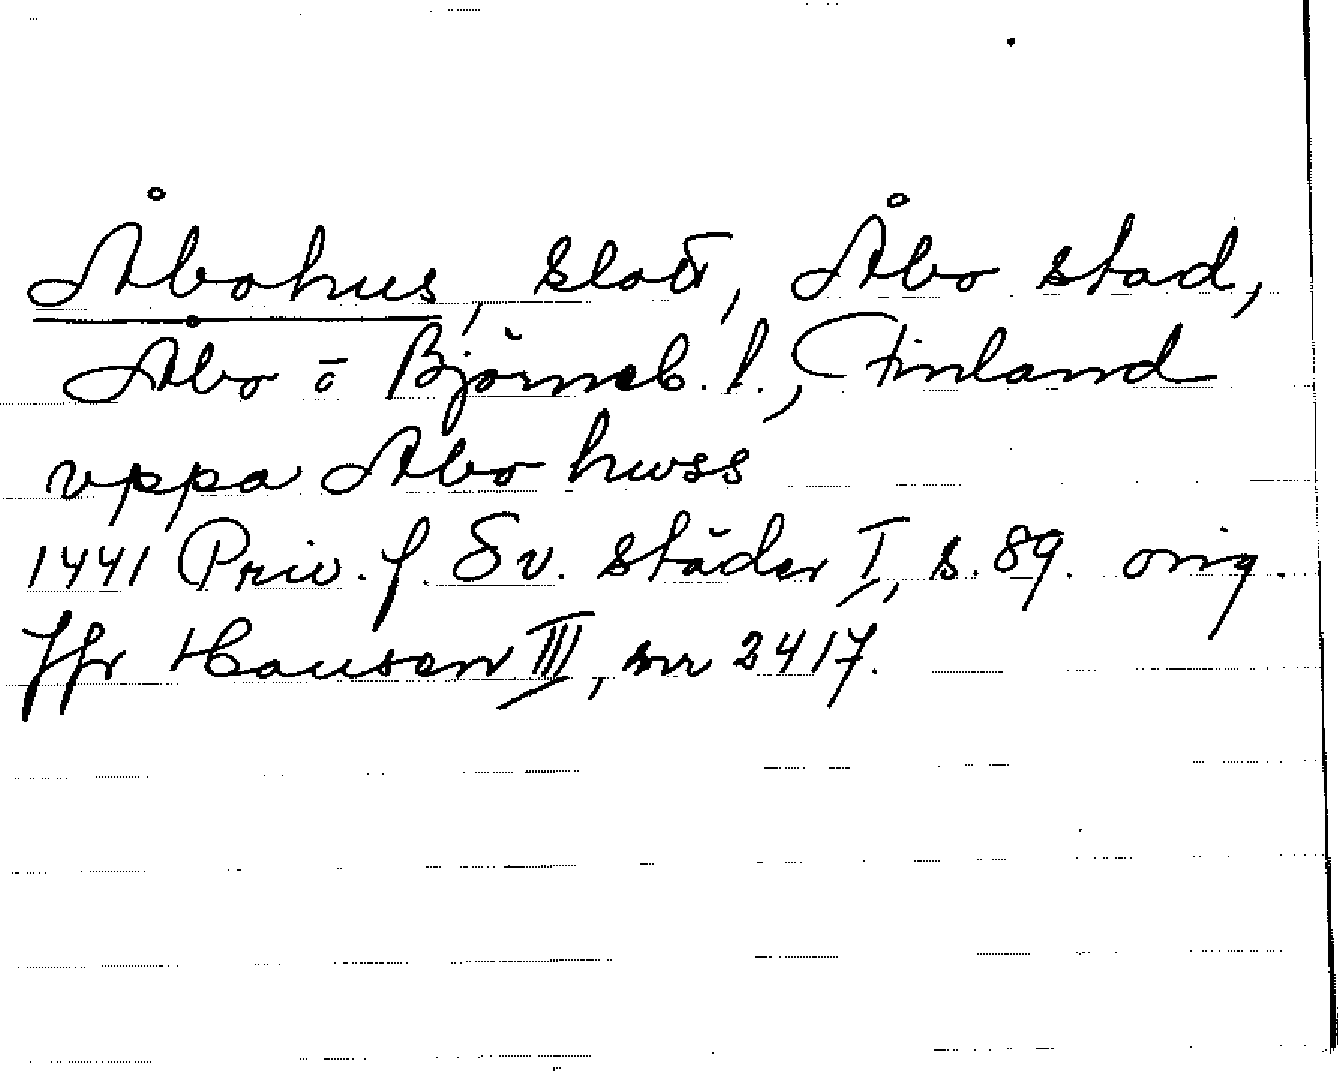 Åbohus, slott, Åbo stad,
Åbo o Björneb. l., Finland
vppa Abo hwss
1441 Priv. f. Sv. städer I, s. 89. orig.
Jfr Hausen III, nr 2417.